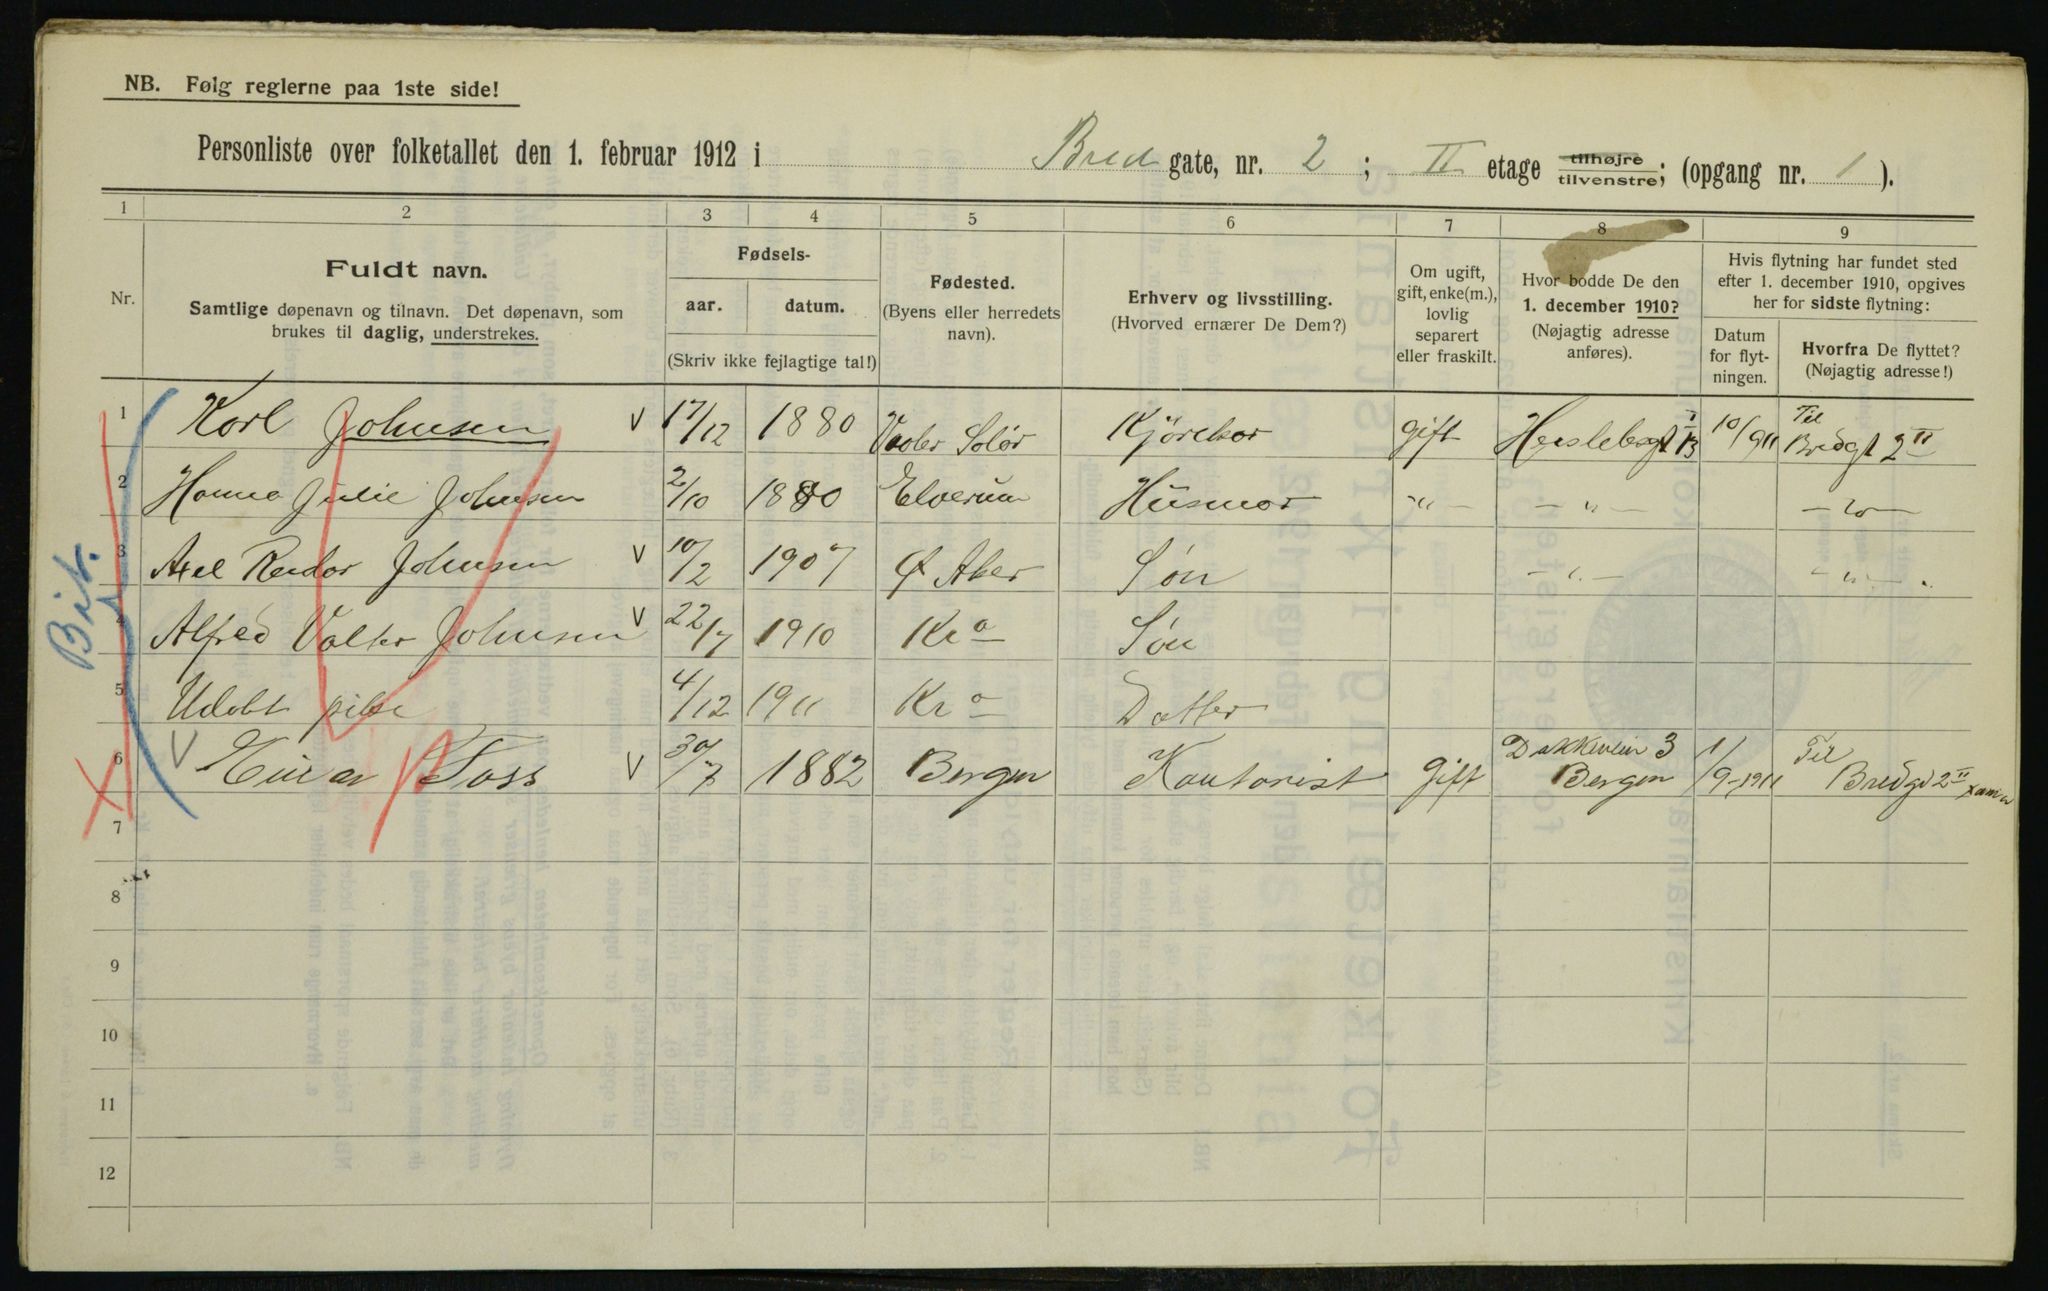 NB. Følg reglerne paa 1ste side!
Personliste over folketallet den 1. februar 1912 i Bred gate, nr. 2 ; II etage tilhøjre / tilvenstre; (opgang nr. 1 ).
1 2 3 4 5 6 7 8 9
Nr.
Fuldt navn.
Samtlige døpenavn og tilnavn. Det døpenavn, som
brukes til daglig, understrekes.
Fødsels-
aar. datum.
(Skriv ikke fejlagtige tal!)
Fødested.
(Byens eller herredets
navn).
Erhverv og livsstilling.
(Hvorved ernærer De Dem?)
Om ugift,
gift, enke(m.),
lovlig
separert
eller fraskilt.
Hvor bodde De den
1. december 1910?
(Nøjagtig adresse
anføres).
Hvis flytning har fundet sted
efter 1. december 1910, opgives
her for sidste flytning:
Datum
for flyt-
ningen.
Hvorfra De flyttet?
(Nøjagtig adresse!)
1 Karl Johnsen V 17/12 1880 Vaaler Solør Kjørekar gift 10/911 Til Bredgt 2 II
2 Hanna Julie Johnsen 2/10 1880 Elverum Husmor — " — — " — — " —
3 Axel Reidar Johnsen V 10/2 1907 Ø Aker Søn — " — — " —
4 Alfred Valter Johnsen V 22/7 1910 Kra Søn
5 Udøbt pike 4/12 1911 Kra Datter
6 V Einar Foss V 30/7 1882 Bergen Kontorist gift 3 Bergen 1/9-1911 Til Bredgt 2 II
7
8
9
10
11
12
Bit.